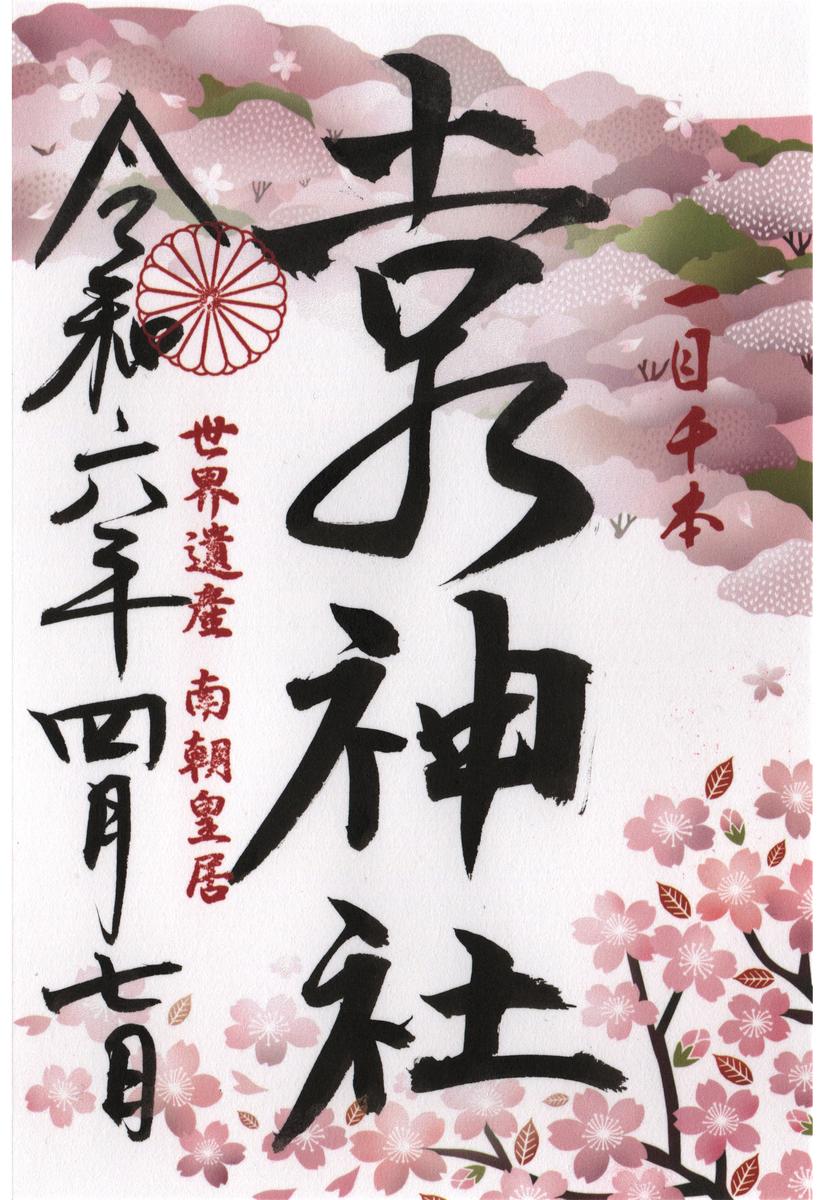 一目千本
吉水神社
世界遺産 南朝皇居
令和六年四月七日